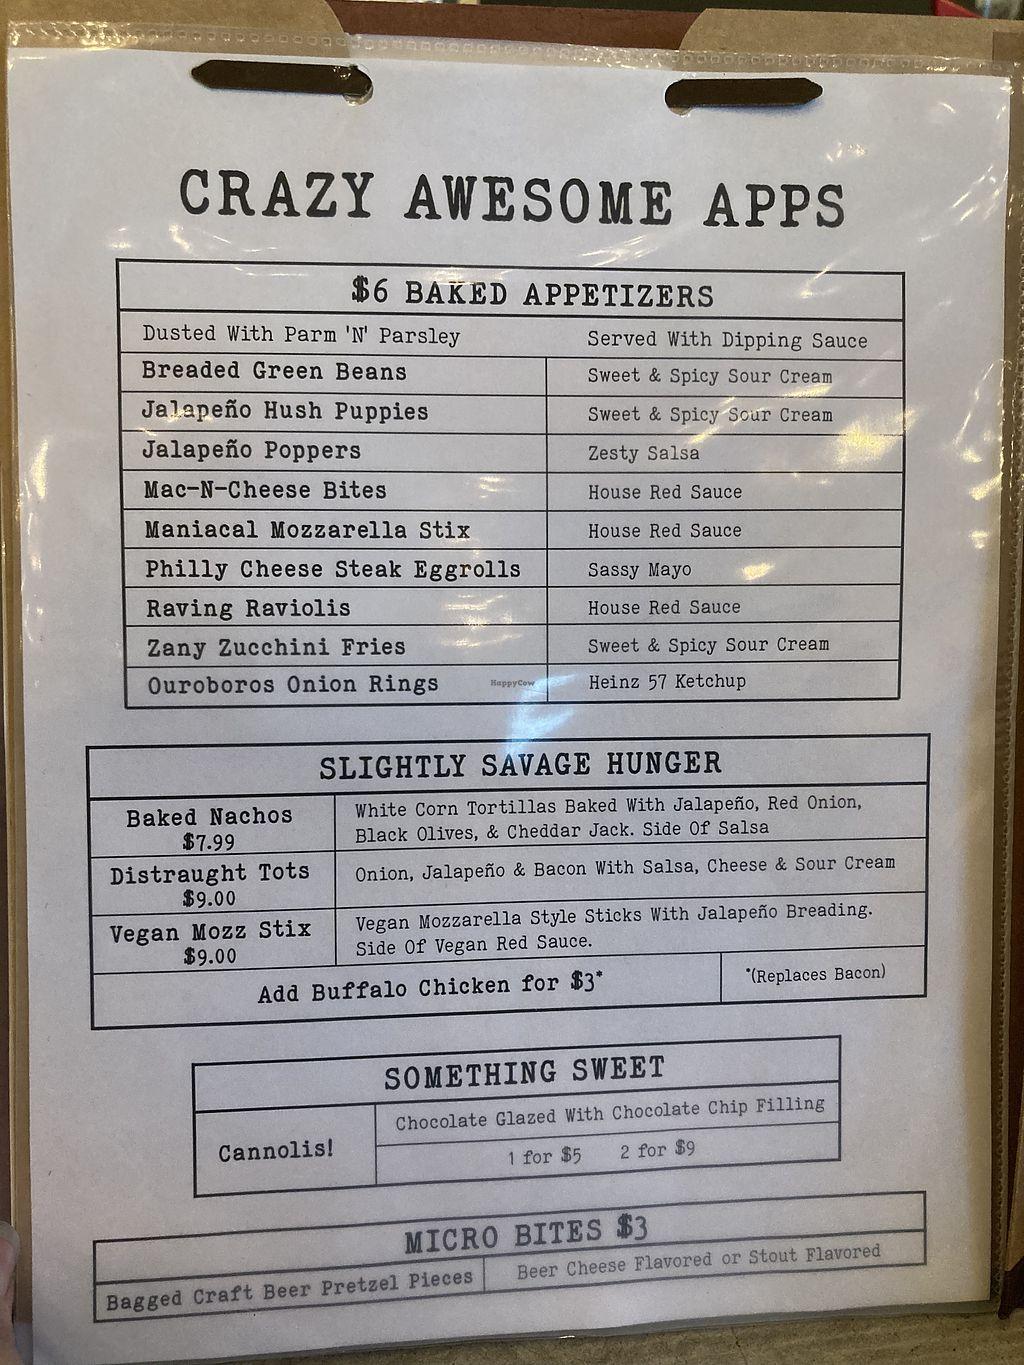 CRAZY AWESOME APPS
$6 BAKED APPETIZERS
Dusted With Parm 'N' Parsley Served With Dipping Sauce
Breaded Green Beans Sweet & Spicy Sour Cream
Jalapeño Hush Puppies Sweet & Spicy Sour Cream
Jalapeño Poppers Zesty Salsa
Mac-N-Cheese Bites House Red Sauce
Maniacal Mozzarella Stix House Red Sauce
Philly Cheese Steak Eggrolls Sassy Mayo
Raving Raviolis House Red Sauce
Zany Zucchini Fries Sweet & Spicy Sour Cream
Ouroboros Onion Rings Heinz 57 Ketchup
HappyCow
SLIGHTLY SAVAGE HUNGER
Baked Nachos
$7.99
White Corn Tortillas Baked With Jalapeño, Red Onion,
Black Olives, & Cheddar Jack. Side Of Salsa
Distraught Tots
$9.00
Onion, Jalapeño & Bacon With Salsa, Cheese & Sour Cream
Vegan Mozz Stix
$9.00
Vegan Mozzarella Style Sticks With Jalapeño Breading.
Side Of Vegan Red Sauce.
Add Buffalo Chicken for $3* *(Replaces Bacon)
SOMETHING SWEET
Cannolis!
Chocolate Glazed With Chocolate Chip Filling
1 for $5 2 for $9
MICRO BITES $3
Bagged Craft Beer Pretzel Pieces Beer Cheese Flavored or Stout Flavored